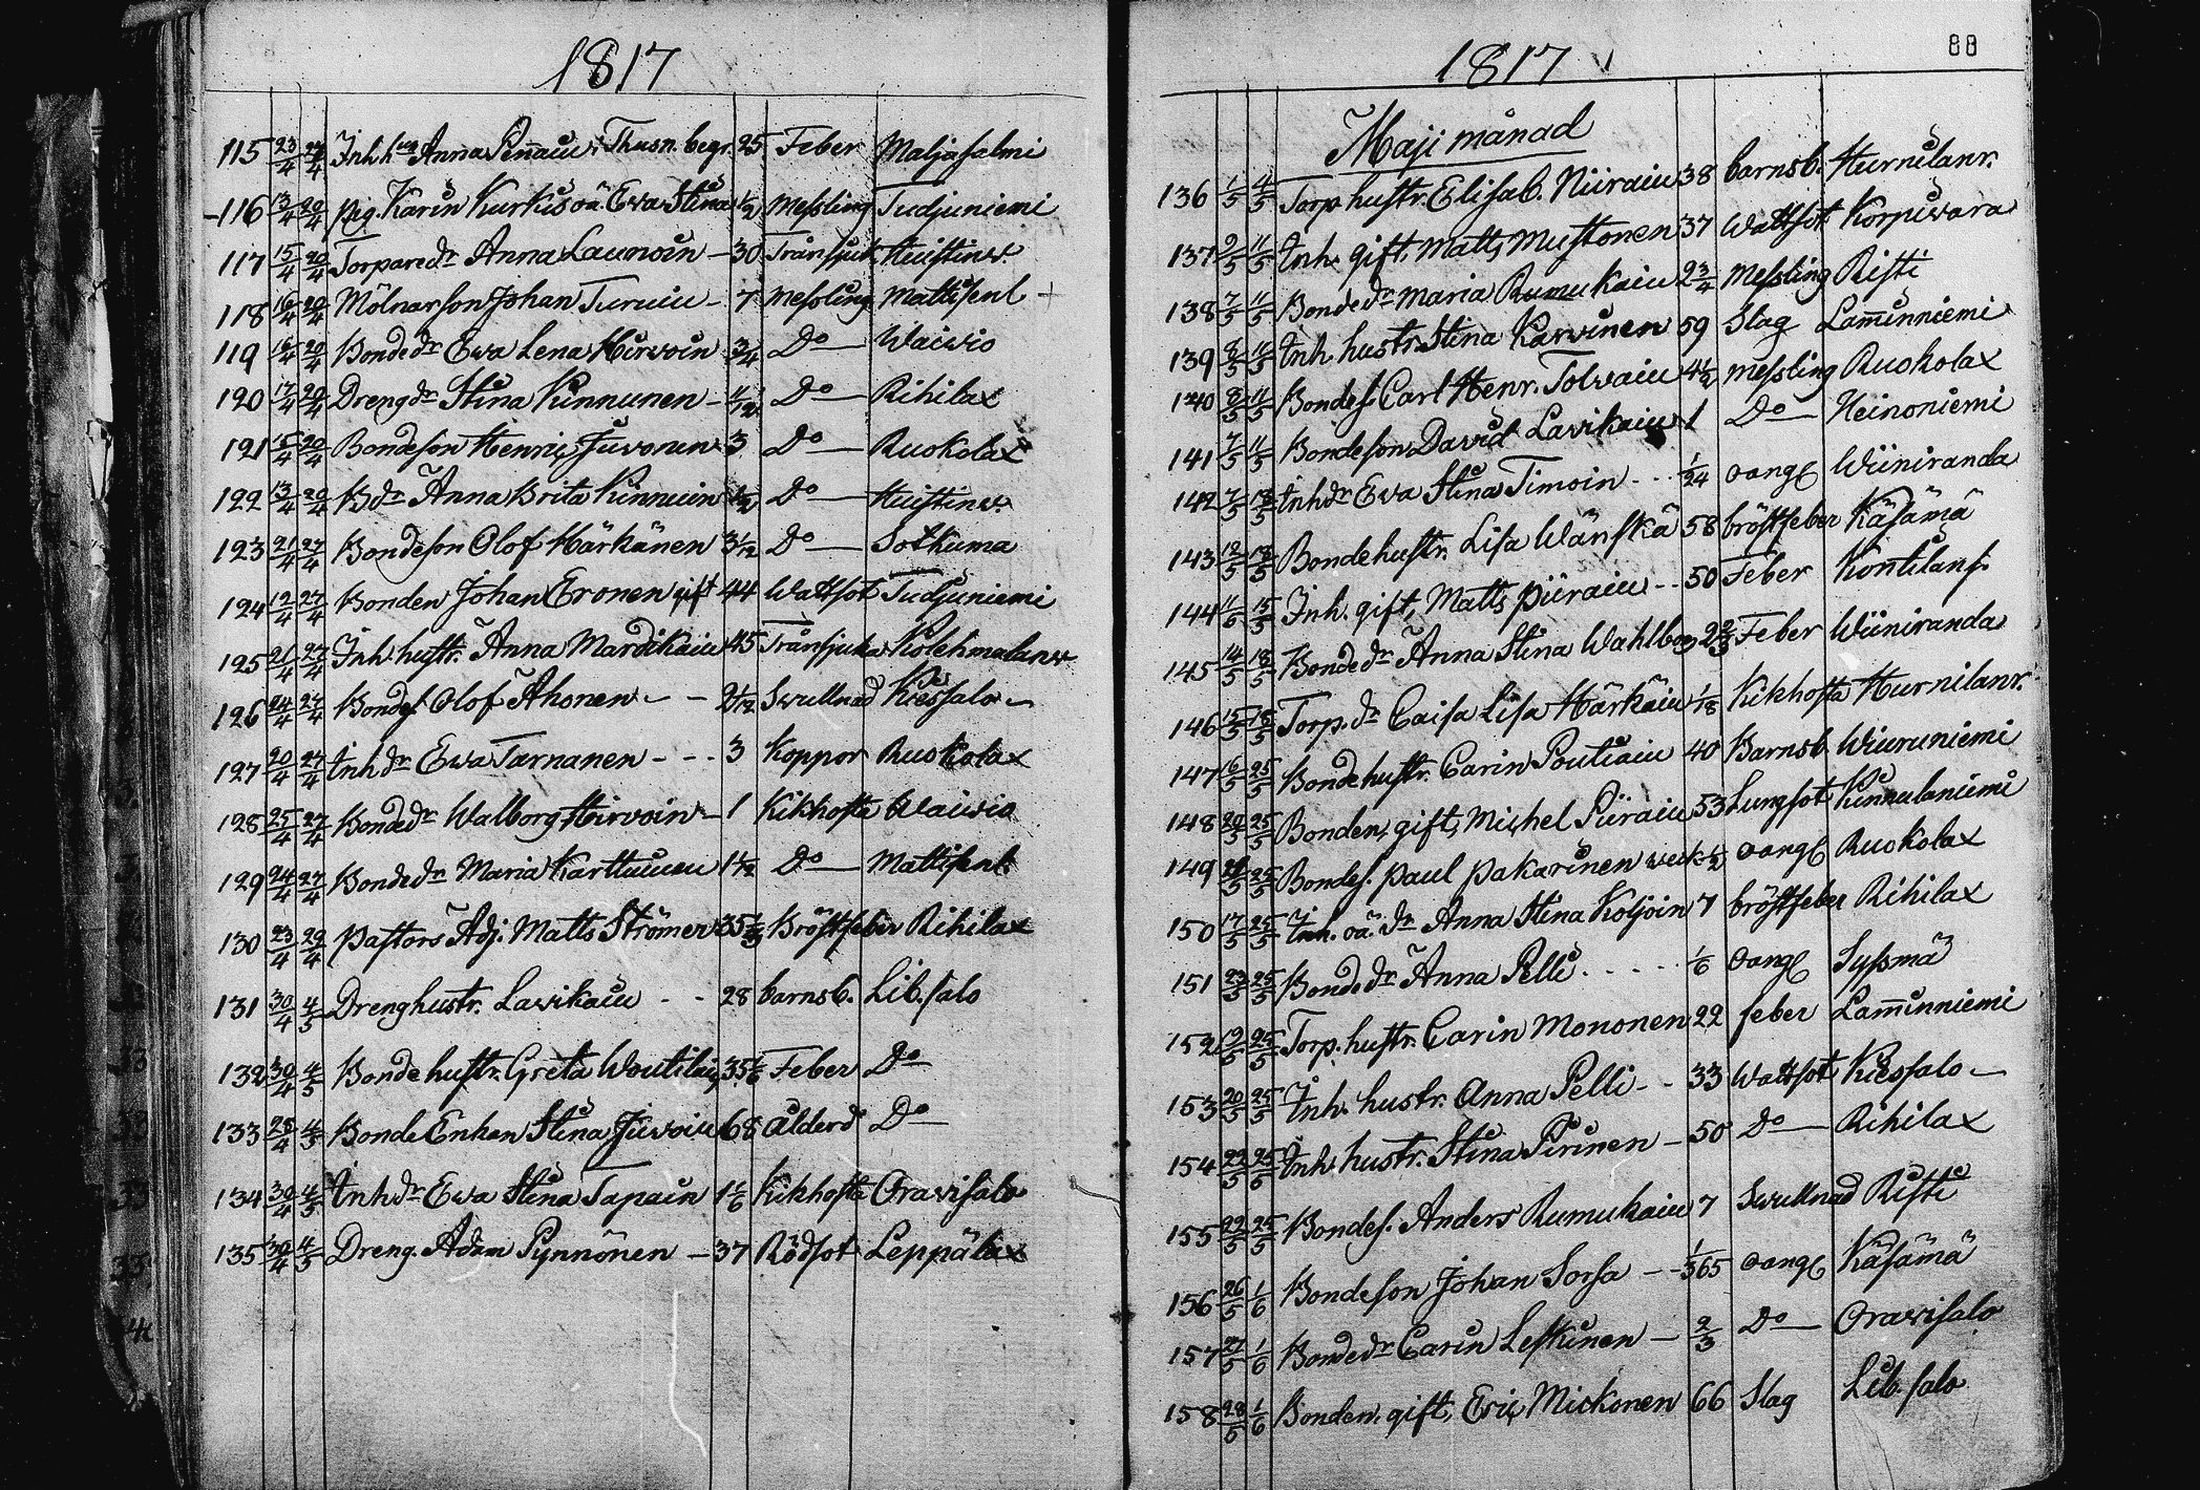 1817
115 23/4 27/4 Inh hu Anna Pennain i Thusn. begr. 25 Feber Maljasalmi
116 13/4 20/4 pig. Karin Kurkis oä Ewa Stina 1/2 Messling Tudjuniemi
117 15/4 20/4 Torparedr Anna Launoin 30 Trånsjuk Huistinv.
118 16/4 20/4 Mölnarson Johan Turuin 7 Messling Mattisenl
119 16/4 20/4 Bondedr Ewa Lena Hirvoin 3/4 Do Waivio
120 17/4 20/4 Drengdr Stina Kinnunen 11/12 Do Rihilax
121 15/4 20/4 Bondeson Henric Juvonen 3 Do Ruokolax
122 13/4 20/4 Bdr Anna Brita Kinnuin 1/2 Do Huistinv.
123 21/4 27/4 Bondeson Olof Härkänen 3 1/12 Do Sotkuma
124 19/4 27/4 Bonden Johan Eronen gift 44 Wattsot Tudjuniemi
125 21/4 27/4 Inh hustr. Anna Mardikain 45 Trånsjuka Kolehmalanv
126 24/4 27/4 Bondes Olof Ahonen 2 1/12 Swullnad Kiessalo
127 20/4 27/4 Inhdr Ewa Tarnanen 3 Koppor Ruokolax
128 25/4 27/4 Bondedr Walborg Hirvoin 1 Kikhosta Waivio
129 24/4 27/4 Bondedr Maria Karttuinen 1 1/2 Do Mattisenl.
130 23/4 29/4 Pastors Adj. Matts Strömer 35 1/3 Bröstfeber Rihilax
131 30/4 4/5 Drenghustr. Lavikain 28 barnsb. Lib. salo
132 30/4 4/5 Bonde hustr. Greta Woutilain 35 1/6 Feber Do
133 28/4 4/5 Bonde Enkan Stina Juvoin 68 Ålderd Do
134 30/4 4/5 Inhdr Ewa Stina Tapain 1 1/6 Kikhosta Oravisalo
135 30/4 4/5 Dreng. Adam Pynnönen 37 Rödsot Leppälax
1817
88
Maji månad
136 1/5 4/5 Torp hustr. Elisab. Niirain 38 barnsb. Hurnilanr.
137 9/5 11/5 Inh. gift, Matts Mustonen 37 Wattsot Korpivara
138 7/5 11/5 Bondedr Maria Rumukain 2 3/4 Messling Risti
139 8/5 11/5 Inh. hustr. Stina Karvinen 59 Slag Laminniemi
140 8/5 11/5 Bondes. Carl Henr. Tolvain 4 1/2 Messling Ruokolax
141 7/5 11/5 Bondeson David Lavikain 1 Do Heinoniemi
142 7/5 18/5 Inhdr Ewa Stina Timoin 1/24 oangl Wiiniranda
143 12/5 18/5 Bondehustr. Lisa Wänskä 58 bröstfeber Käsämä
144 11/5 15/5 Inh. gift, Matts Piirain 50 Feber Kontilans.
145 14/5 18/5 Bondedr Anna Stina Wahlberg 2 2/3 Feber Wiiniranda
146 15/5 18/5 Torp. dr Caisa Lisa Härkäin 1/18 Kikhosta Hurnilanr.
147 16/5 25/5 Bondehustr. Carin Poutiain 40 Barnsb. Wiuruniemi
148 20/5 25/5 Bonden, gift, Michel Piirain 53 Lungsot Kinnulaniemi
149 21/5 25/5 Bondes. Paul Pakarinen weck 1/2 oangl Ruokolax
150 17/5 25/5 Inh. oä. dr Anna Stina Koljoin 7 bröstfeber Rihilax
151 23/5 25/5 Bondedr Anna Pelli 1/6 oangl Syssmä
152 19/5 25/5 Torp. hustr. Carin Mononen 22 feber Laminniemi
153 20/5 25/5 Inh. hustr. Anna Pelli 33 Wattsot Kiessalo
154 22/5 25/5 Inh. hustr. Stina Pirinen 50 Do Rihilax
155 22/5 25/5 Bondes. Anders Rumukain 7 Swullnad Risti
156 26/5 1/6 Bondeson Johan Sorsa 1/365 oangl Käsämä
157 27/5 1/6 Bondedr Carin Leskinen 2/3 Do Oravisalo
158 28/5 1/6 Bonden, gift, Eric Mickonen 66 Slag Lib. salo